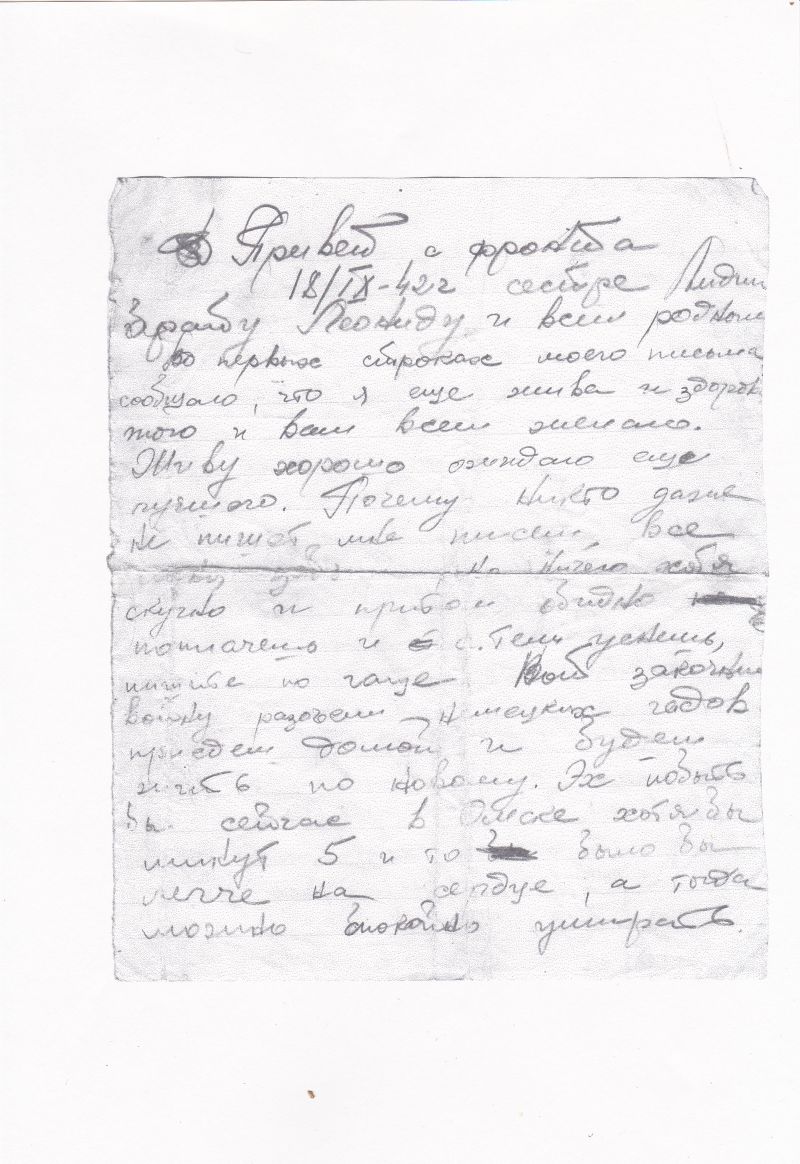 Привет с фронта
18/IX-42г сестре Лидии
Брату Леониду и всем родным
Во первых строках моего письма
сообщаю, что я еще жива и здорова
того и вам всем желаю.
Живу хорошо ожидаю еще
лучшего. Почему никто даже
не пишет мне писем, все
но ничего хотя
скучно и притом обидно
поплачешь и с тем уснешь,
пишите по чаще Вот закончим
войну разобъем немецких гадов
приедем домой и будем
жить по новому. Эх побыть
бы сейчас в Омске хотя бы
минут 5 и то было бы
легче на сердце, а тогда
можно спокойно умирать.